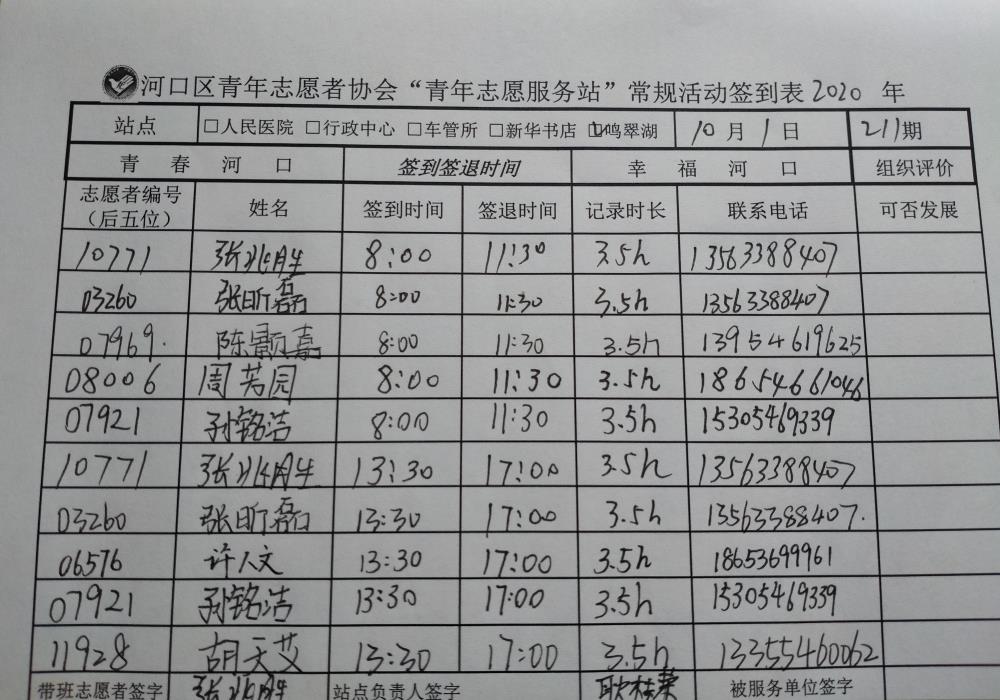 河口区青年志愿者协会“青年志愿服务站”常规活动签到表2020 年
站点 □人民医院 □行政中心 □车管所 □新华书店 ☑鸣翠湖 10月1日 211期
青春河口 签到签退时间 幸福河口 组织评价
志愿者编号（后五位） 姓名 签到时间 签退时间 记录时长 联系电话 可否发展
10771 张兆胜 8:00 11:30 3.5h 13563388407
03260 张昕磊 8:00 11:30 3.5h 13563388407
07969. 陈颢嘉 8:00 11:30 3.5h 13954619625
08006 周芳园 8:00 11:30 3.5h 18654661046
07921 孙铭洁 8:00 11:30 3.5h 15305469339
10771 张兆胜 13:30 17:00 3.5h 13563388407
03260 张昕磊 13:30 17:00 3.5h 13563388407.
06576 许人文 13:30 17:00 3.5h 18653699961
07921 孙铭洁 13:30 17:00 3.5h 15305469339
11928 胡天艾 13:30 17:00 3.5h 13355460062
带班志愿者签字 张兆胜 站点负责人签字 耿桂荣 被服务单位签字